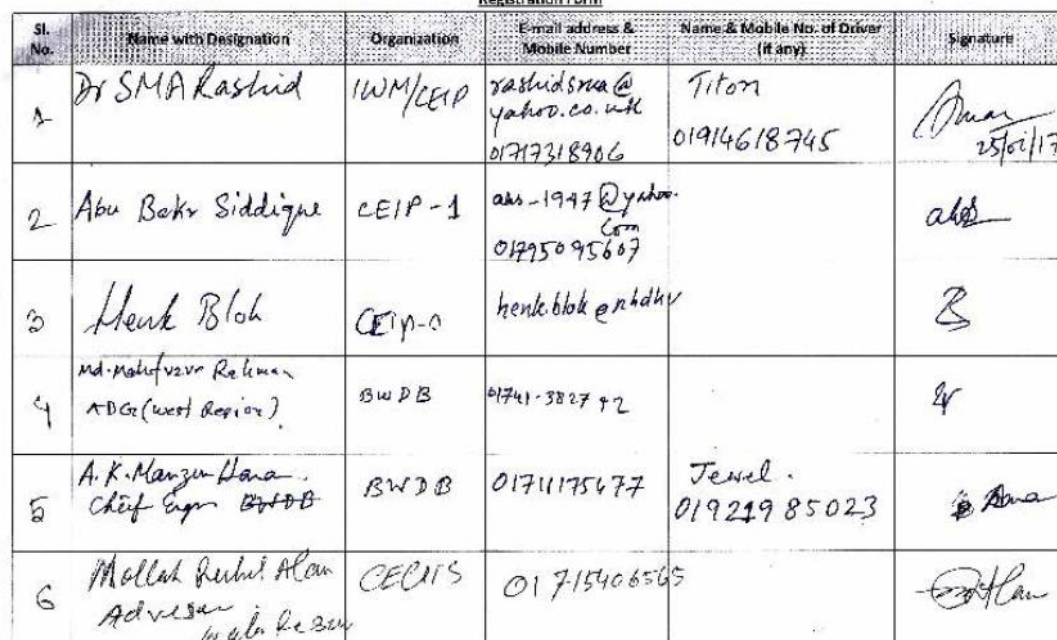 Registration Form
Sl. No.
Name with Designation
Organization
E-mail address & Mobile Number
Name & Mobile No. of Driver (if any)
Signature
1
Dr SMA Rashid
IWM/CEIP
rashidsma@
yahoo.co.uk
01717318906
Titon
01914618745
2
Abu Bakr Siddique
CEIP-1
abs-1947@yahoo.
com
01795095607
3
Henk Blok
henk.blok@rhdhv
4
Rahman
ADG (West Region)
BWDB
5
A.K. Manzur
Chief Engr BWDB
BWDB
01711175477
Jewel.
01921985023
6
Mollah Ruhul Alam
CEGIS
01715406565